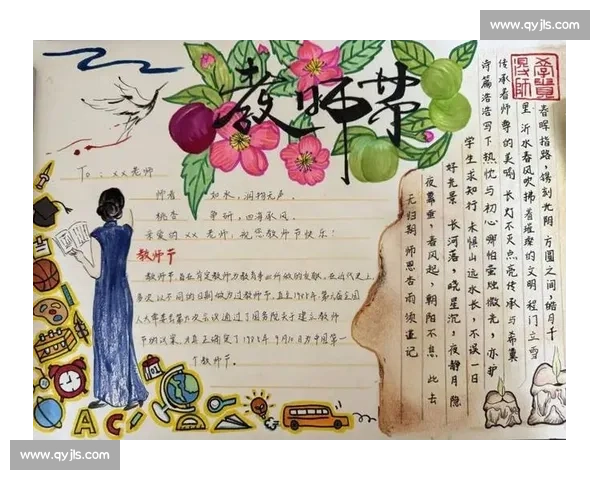 www.qyjls.com
教师节
To: xx老师
师者 如水,润物无声。
桃李 争妍,四海承风。
亲爱的 xx 老师,祝您教师节快乐!
教师节
教师节,旨在肯定教师为教育事业所做的贡献。在近代史上,
多次以不同的日期做为过教师节。直至1985年,第六届全国
人大常委会第九次会议通过了国务院关于建立教师
节的议案,才真正确定了1985年9月10日为中国第一
个教师节。
春晖指路 镌刻光阴 方圆之间,皓月千
里 沂水春风吹拂着璀璨的文明 程门立雪
传承着师尊的美喻 长灯不灭点亮传承与希冀
诗篇浩浩写下热忱与初心 哪怕萤烛微光,亦驴
学生求知行 未惧山远水长,不误一日
好光景 长河落,晓星沉,夜静月隐
夜幕垂,春风起,朝阳不息 此去
无归期 师恩杏雨须谨记
ABC
www.qyjls.com
www.qyjls.com